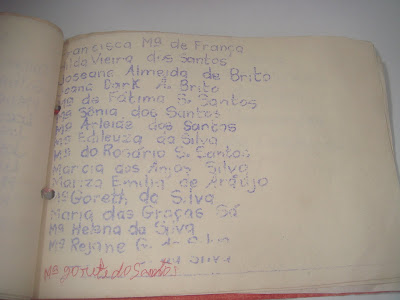 Francisca Mª de França
ilda Vieira dos Santos
Joseane Almeida de Brito
Joana Dark A. Brito
Mª de Fátima B. Santos
Mª Sônia dos Santos
Mª Arleide dos Santos
Mª Edileuza da Silva
Mª do Rosário S. Santos
Marcia dos Anjos Silva
Mariza Emilia de Araújo
Mª Goreth da Silva
Maria das Graças Sá
Mª Helena da Silva
Mª Rejane G. da Silva
Mª do Santos